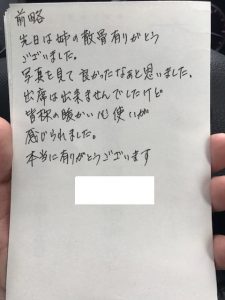 前略
先日は姉の散骨有りがとう
ございました。
写真を見て良かったなあと思いました。
出席は出来ませんでしたけど
皆様の暖かい心使いが
感じられました。
本当に有りがとうございます